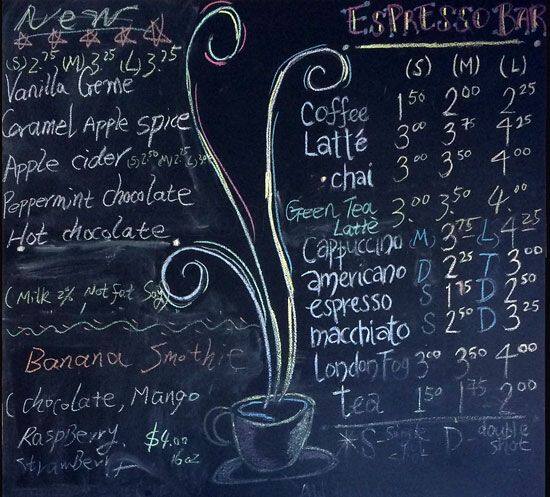 New
(S) 2.75 (M) 3.25 (L) 3.75
Vanilla Creme
Caramel Apple spice
Apple cider (S) 2.50 (M) 2.75 (L)
Peppermint chocolate
Hot chocolate
(Milk 2% Not Fat Soy)
Banana Smothie
(chocolate, Mango
RaspBerry, $4.00
StrawBerry 16oz
ESPRESSO BAR
(S) (M) (L)
Coffee 1 50 2 00 2 25
Latté 3 00 3 75 4 25
chai 3 00 3 50 4 00
Green Tea Latte 3.00 3.50 4.00
Cappuccino M 3 75 L 4 25
americano D 2 25 T 3 00
espresso S 1 75 D 2 50
macchiato S 2 50 D 3 25
London Fog 3 00 3 50 4 00
tea 1 50 1 75 2 00
*S - single shot D - double shot